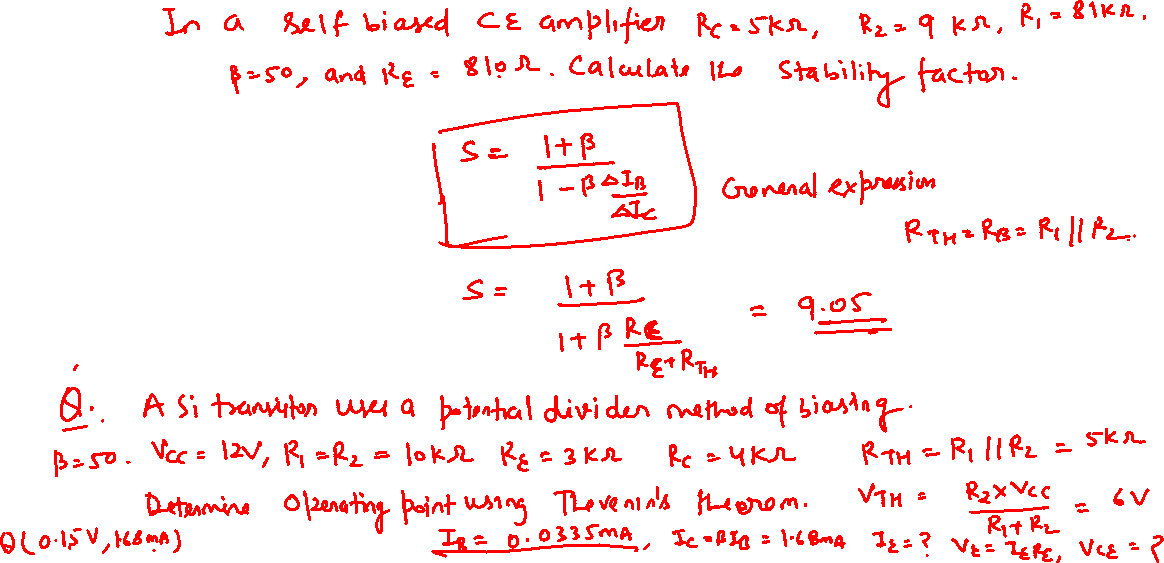 In a self biased CE amplifier RC = 5KΩ, R2 = 9 KΩ, R1 = 81KΩ,
β=50, and RE = 810Ω. Calculate the Stability factor.
S = (1+β) / (1 - β ΔIB/ΔIC) General expression
RTH = RB = R1 || R2.
S = (1+β) / (1+β RE/(RE+RTH)) = 9.05
Q. A Si transistor uses a potential divider method of biasing.
β=50. VCC = 12V, R1 = R2 = 10KΩ RE = 3KΩ RC = 4KΩ RTH = R1 || R2 = 5KΩ
Determine Operating point using Thevenin's theorem. VTH = (R2 x VCC) / (R1+R2) = 6V
Q(0.15V, 1.68mA) IB = 0.0335mA, IC = βIB = 1.68mA IE = ? VE = IERE, VCE = ?